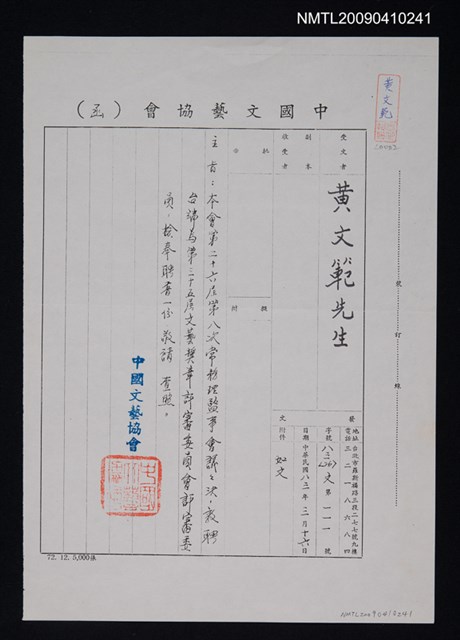 NMTL20090410241
黃文範
中國文藝協會（函）
受文者
黃文範先生
副本
收受者
批示
擬辦
發文
地址 台北市羅斯福路三段二七七號九樓
電話 三二一八六八四
字號 八三 文 第一一一號
日期 中華民國八三年三月十六日
附件 如文
主旨：本會第二十六屆第八次常務理監事會議之決，敦聘
台端為第三十五屆文藝獎章評審委員會評審委
員，檢奉聘書一份 敬請 查照。
中國文藝協會
裝
訂
線
72.12.5,000張
NMTL20090410241